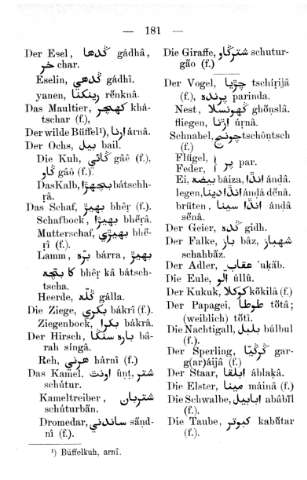 — 181 —
Der Esel, گدها gádhâ,
خر char.
Eselin, گدهی gádhî.
yanen, رینکنا rẽnknâ.
Das Maultier, کهچر khá-
tschar (f.),
Der wilde Büffel¹), ارنا árnâ.
Der Ochs, بیل bail.
Die Kuh, گائی gâê (f.),
گاو gâô (f.).
Das Kalb, بچهڑا bátschh-
ṛâ.
Das Schaf, بهیڑ bhêṛ (f.)
Schafbock, بهیڑا bhêṛâ.
Mutterschaf, بهیڑی bhê-
ṛî (f.).
Lamm, برّه bárra, بهیڑ
کا بچه bhêṛ kâ bátsch-
tscha.
Heerde, گلّه gálla.
Die Ziege, بکری bákrî (f.).
Ziegenbock, بکرا bákrâ.
Der Hirsch, باره سنگا bâ-
rah singâ.
Reh, هرنی hárnî (f.).
Das Kamel, اونت ûnt, شتر
schútur.
Kameltreiber, شتربان
schúturbân.
Dromedar, ساندنی sãnd-
nî (f.).
¹) Büffelkuh, arnî.
Die Giraffe, شترگاو schutur-
gâo (f.)
Der Vogel, چڑیا tschíṛijâ
(f.), پرنده parinda.
Nest, گهونسلا ghõnslâ.
fliegen, اڑنا úṛnâ.
Schnabel, چونچ tschõntsch
(f.)
Flügel,
Feder, } پر par.
Ei, بیضه báiza, انڈا ánḍâ.
legen, انڈا دینا ánḍâ dênâ.
brüten, انڈا سینا ánḍâ
sênâ.
Der Geier, گده gidh.
Der Falke, باز bâz, شهباز
schahbâz.
Der Adler, عقاب 'uḳâb.
Die Eule, الو úllû.
Der Kukuk, کوکلا kôkílâ (f.)
Der Papagei, طوطا tôtâ;
(weiblich) tôtî.
Die Nachtigall, بلبل búlbul
(f.).
Der Sperling, گرگیّا gar-
g(ar)áijâ (f.)
Der Staar, ابلقا áblaḳâ.
Die Elster, مینا máinâ (f.)
Die Schwalbe, ابابیل abâbîl
(f.).
Die Taube, کبوتر kabûtar
(f.).